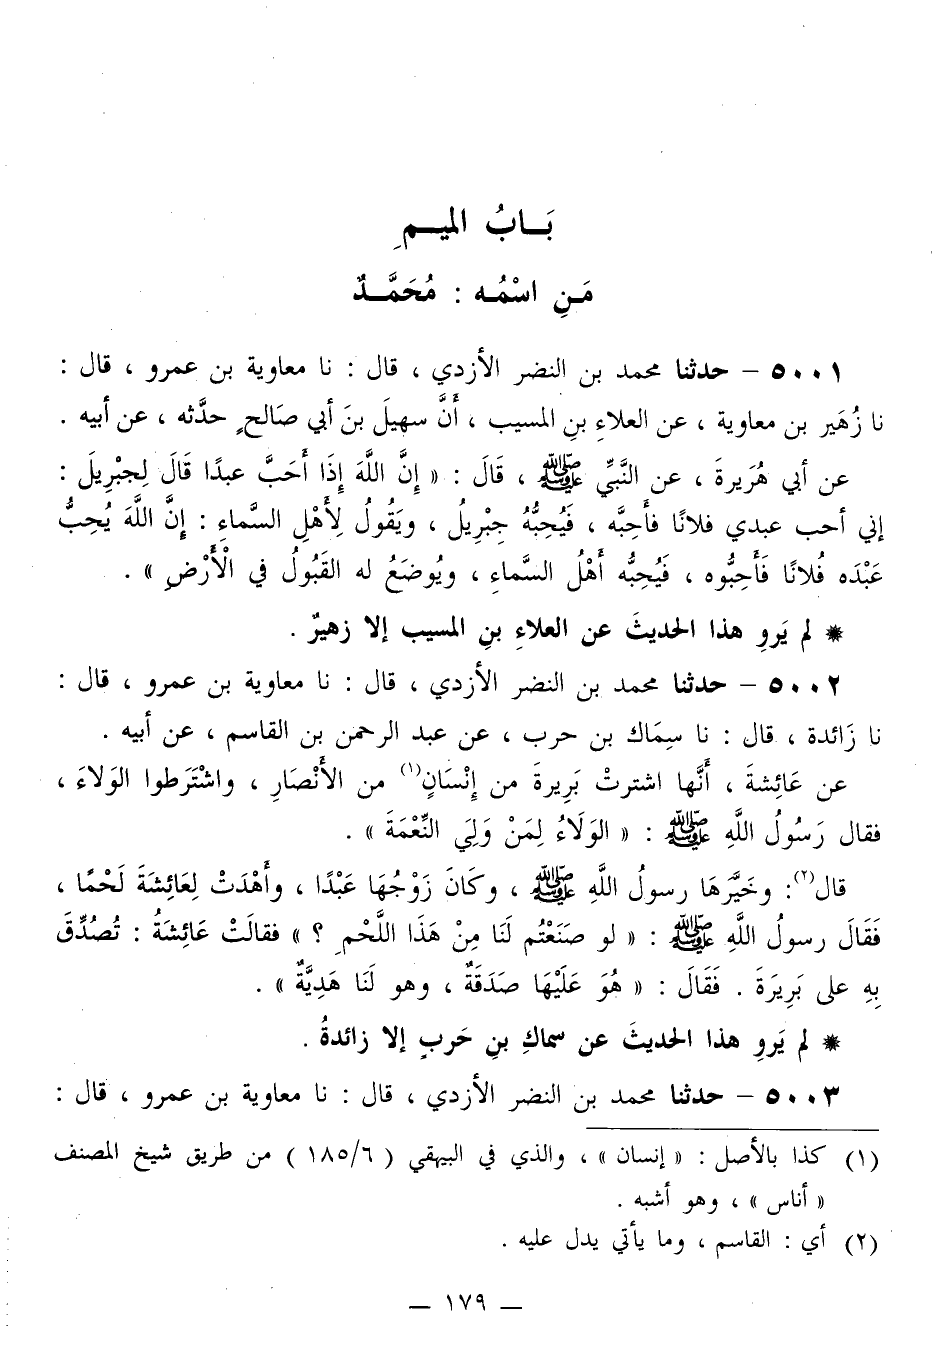 بَـابُ الميـمِ
مَـنِ اسْمُـه : مُحَمَّـدٌ
٥٠٠١ – حدثنا محمد بن النضر الأزدي ، قال : نا معاوية بن عمرو ، قال :
نا زُهَير بن معاوية ، عن العلاءِ بنِ المسيب ، أَنَّ سهيلَ بنَ أبي صَالحٍ حدَّثه ، عن أبيه .
عن أبي هُرَيرةَ ، عن النَّبِّي ﷺ ، قَالَ : « إِنَّ اللَّهَ إِذَا أَحَبَّ عبدًا قَالَ لِجبْرِيلَ :
إني أحب عبدي فلانًا فأَحِبَّه ، فَيُحِبُّهُ جِبْرِيلُ ، ويَقُولُ لِأَهْلِ السَّماءِ : إِنَّ اللَّهَ يُحِبُّ
عَبْدَه فُلانًا فَأَحِبُّوه ، فَيُحِبُّه أَهْلُ السَّماءِ ، ويُوضَعُ له القَبُولُ في الْأَرْضِ » .
* لم يَروِ هذا الحديثَ عن العلاءِ بنِ المسيب إلا زهيرٌ .
٥٠٠٢ – حدثنا محمد بن النضر الأزدي ، قال : نا معاوية بن عمرو ، قال :
نا زَائدة ، قال : نا سِمَاك بن حرب ، عن عبد الرحمن بن القاسم ، عن أبيه .
عن عَائِشةَ ، أَنَّها اشترتْ بَرِيرةَ من إِنْسَانٍ(١) من الأَنْصَارِ ، واشْتَرَطوا الوَلاءَ ،
فقال رَسُولُ اللَّهِ ﷺ : « الوَلَاءُ لِمَنْ وَلِيَ النِّعْمَةَ » .
قال(٢): وخَيَّرَهَا رسولُ اللَّهِ ﷺ ، وكَانَ زَوْجُهَا عَبْدًا ، وأَهْدَتْ لِعَائِشَةَ لَحْمًا ،
فَقَالَ رسولُ اللَّهِ ﷺ : « لو صَنَعْتُم لَنَا مِنْ هَذَا اللَّحْمِ ؟ » فقالَتْ عَائِشَةُ : تُصُدِّقَ
بِهِ على بَرِيرَةَ . فَقَالَ : « هُوَ عَلَيْهَا صَدَقَةٌ ، وهو لَنَا هَدِيَّةٌ » .
* لم يَروِ هذا الحديثَ عن سماكِ بنِ حَربٍ إلا زائدةُ .
٥٠٠٣ – حدثنا محمد بن النضر الأزدي ، قال : نا معاوية بن عمرو ، قال :
(١) كذا بالأصل : « إنسان » ، والذي في البيهقي ( ١٨٥/٦ ) من طريق شيخ المصنف
« أناس » ، وهو أشبه .
(٢) أي : القاسم ، وما يأتي يدل عليه .
– ١٧٩ –